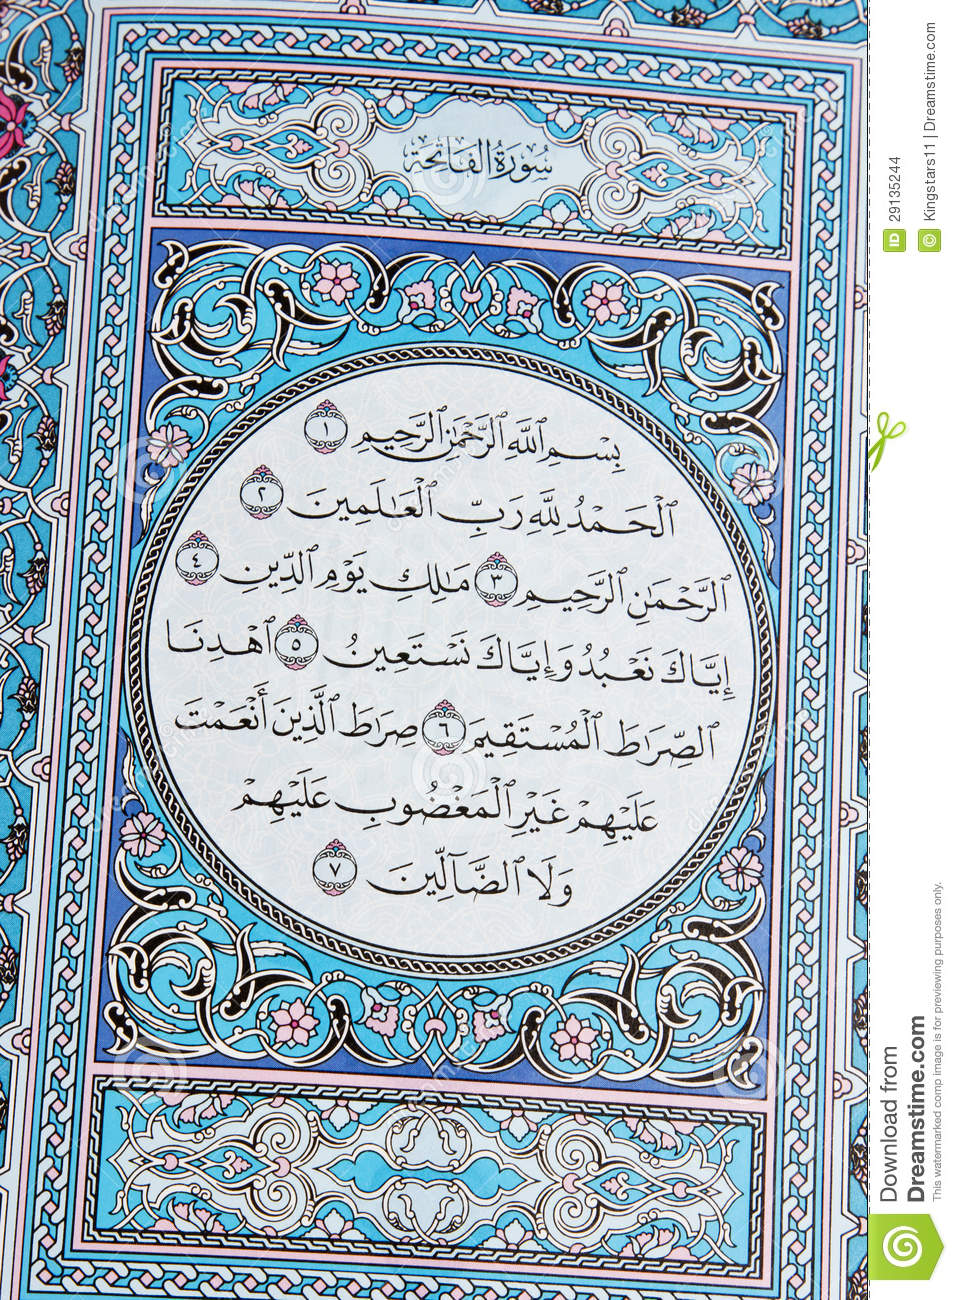 سُورَةُ الفَاتِحَةِ
بِسْمِ ٱللَّهِ ٱلرَّحْمَٰنِ ٱلرَّحِيمِ ١
ٱلْحَمْدُ لِلَّهِ رَبِّ ٱلْعَٰلَمِينَ ٢
ٱلرَّحْمَٰنِ ٱلرَّحِيمِ ٣ مَٰلِكِ يَوْمِ ٱلدِّينِ ٤
إِيَّاكَ نَعْبُدُ وَإِيَّاكَ نَسْتَعِينُ ٥ ٱهْدِنَا
ٱلصِّرَٰطَ ٱلْمُسْتَقِيمَ ٦ صِرَٰطَ ٱلَّذِينَ أَنْعَمْتَ
عَلَيْهِمْ غَيْرِ ٱلْمَغْضُوبِ عَلَيْهِمْ
وَلَا ٱلضَّآلِّينَ ٧
ID 29135244
© Kingstars11 | Dreamstime.com
Download from
Dreamstime.com
This watermarked comp image is for previewing purposes only.